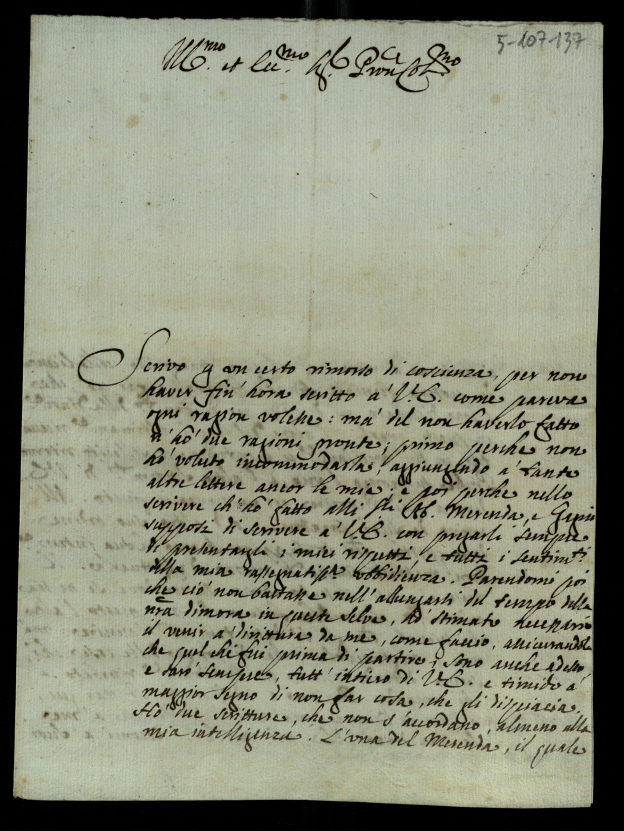 5-107-137
Ill.mo et Ecc.mo Sig.r Pron Col.mo
Scrivo p un certo rimorso di coscienza, per non
haver fin'hora scritto à V.E. come pareva
ogni ragion volesse: mà del non haverlo fatto
n'hò due ragioni pronte; primo perche non
hò voluto incommodarla, aggiungendo à tante
altre lettere ancor le mie; e poi perche nello
scrivere ch'hò fatto alli SS.ri Ab. Merenda, e
supposi di scrivere à V.E. con pregarli sempre
di presentargli i miei rispetti, e tutti i sentim.ti
della mia rassegnatiss.a obbidienza. Parendomi poi
che ciò non bastasse nell'allungarsi del tempo della
nrã dimora in queste selve, hò stimato necessario
il venir à dirittura da me, come faccio, assicurandola
che quel che fui prima di partire, sono anche adesso
e sarò sempre, tutt'intiero di V.E. e timido à
maggior segno di non far cosa, che gli dispiaccia.
Hò due scritture, che non s'accordano, almeno alla
mia intelligenza. L'una del Merenda, il quale